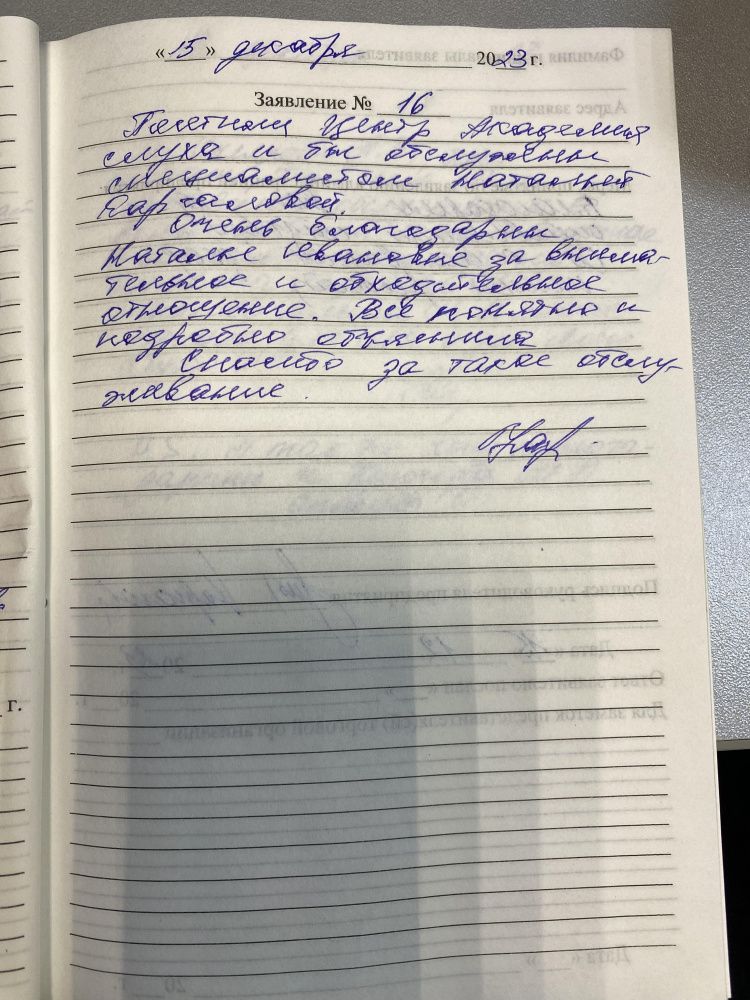 «15» декабря 2023 г.
Заявление № 16
Центр Академия
слуха и был обслужены
специалистом Натальей
Очень благодарны
Наталье Ивановне за внима-
тельное и обходительное
отношение. Все понятно и
подробно объяснила
Спасибо за такое обслу-
живание.
г.